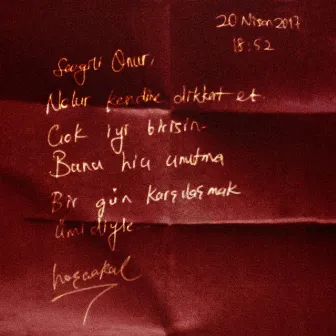 20 Nisan 2017
18:52
Sevgili Onur,
Nolur kendine dikkat et.
Çok iyi birisin.
Bunu hiç unutma
Bir gün karşılaşmak
ümidiyle
hoşçakal